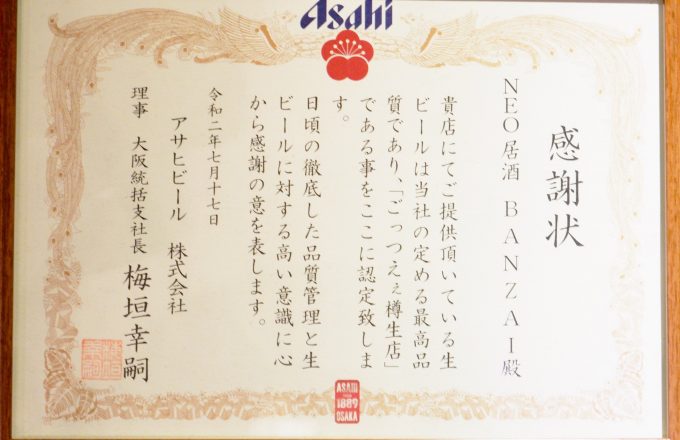 Asahi
感謝状
NEO居酒 BANZAI 殿
貴店にてご提供頂いている生
ビールは当社の定める最高品
質であり、「ごっつえぇ樽生店」
である事をここに認定致しま
す。
日頃の徹底した品質管理と生
ビールに対する高い意識に心
から感謝の意を表します。
令和二年七月十七日
アサヒビール 株式会社
理事 大阪統括支社長 梅垣幸嗣
ASAHI
FROM
1889
OSAKA